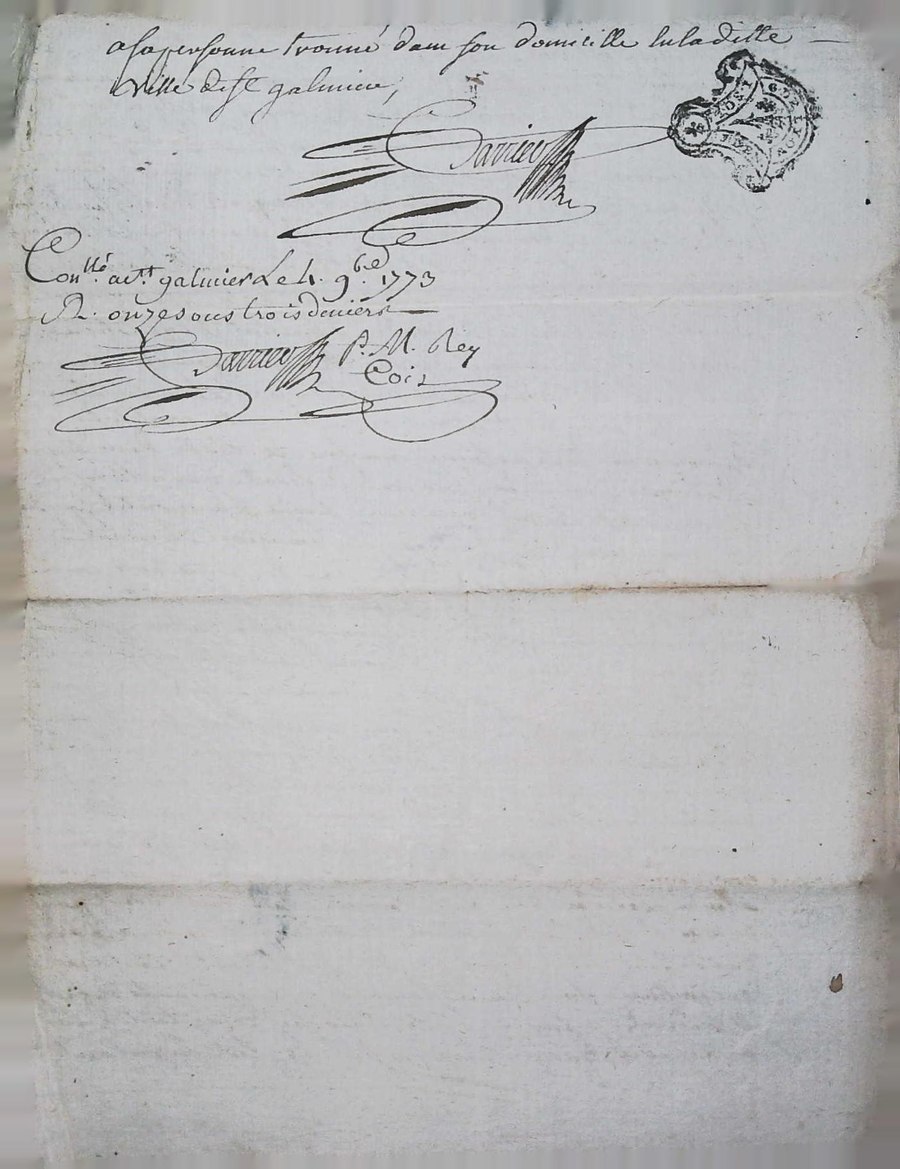 a sa personne trouvé dans son domicille en la ditte
ville de st galmier,
Barrieu
Conllé. a st. galmier Le 4. 9bre. 1773
R. onze sous trois deniers
Barrieu P. M. Rey
Cois